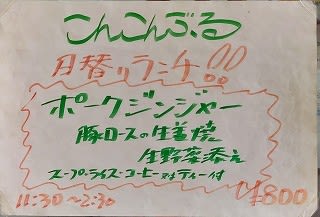 こんこんぶる
日替りランチ!!
ポークジンジャー
豚ロースの生姜焼
生野菜添え
スープ・ライス・コーヒー又はティー付
11:30~2:30 ¥800